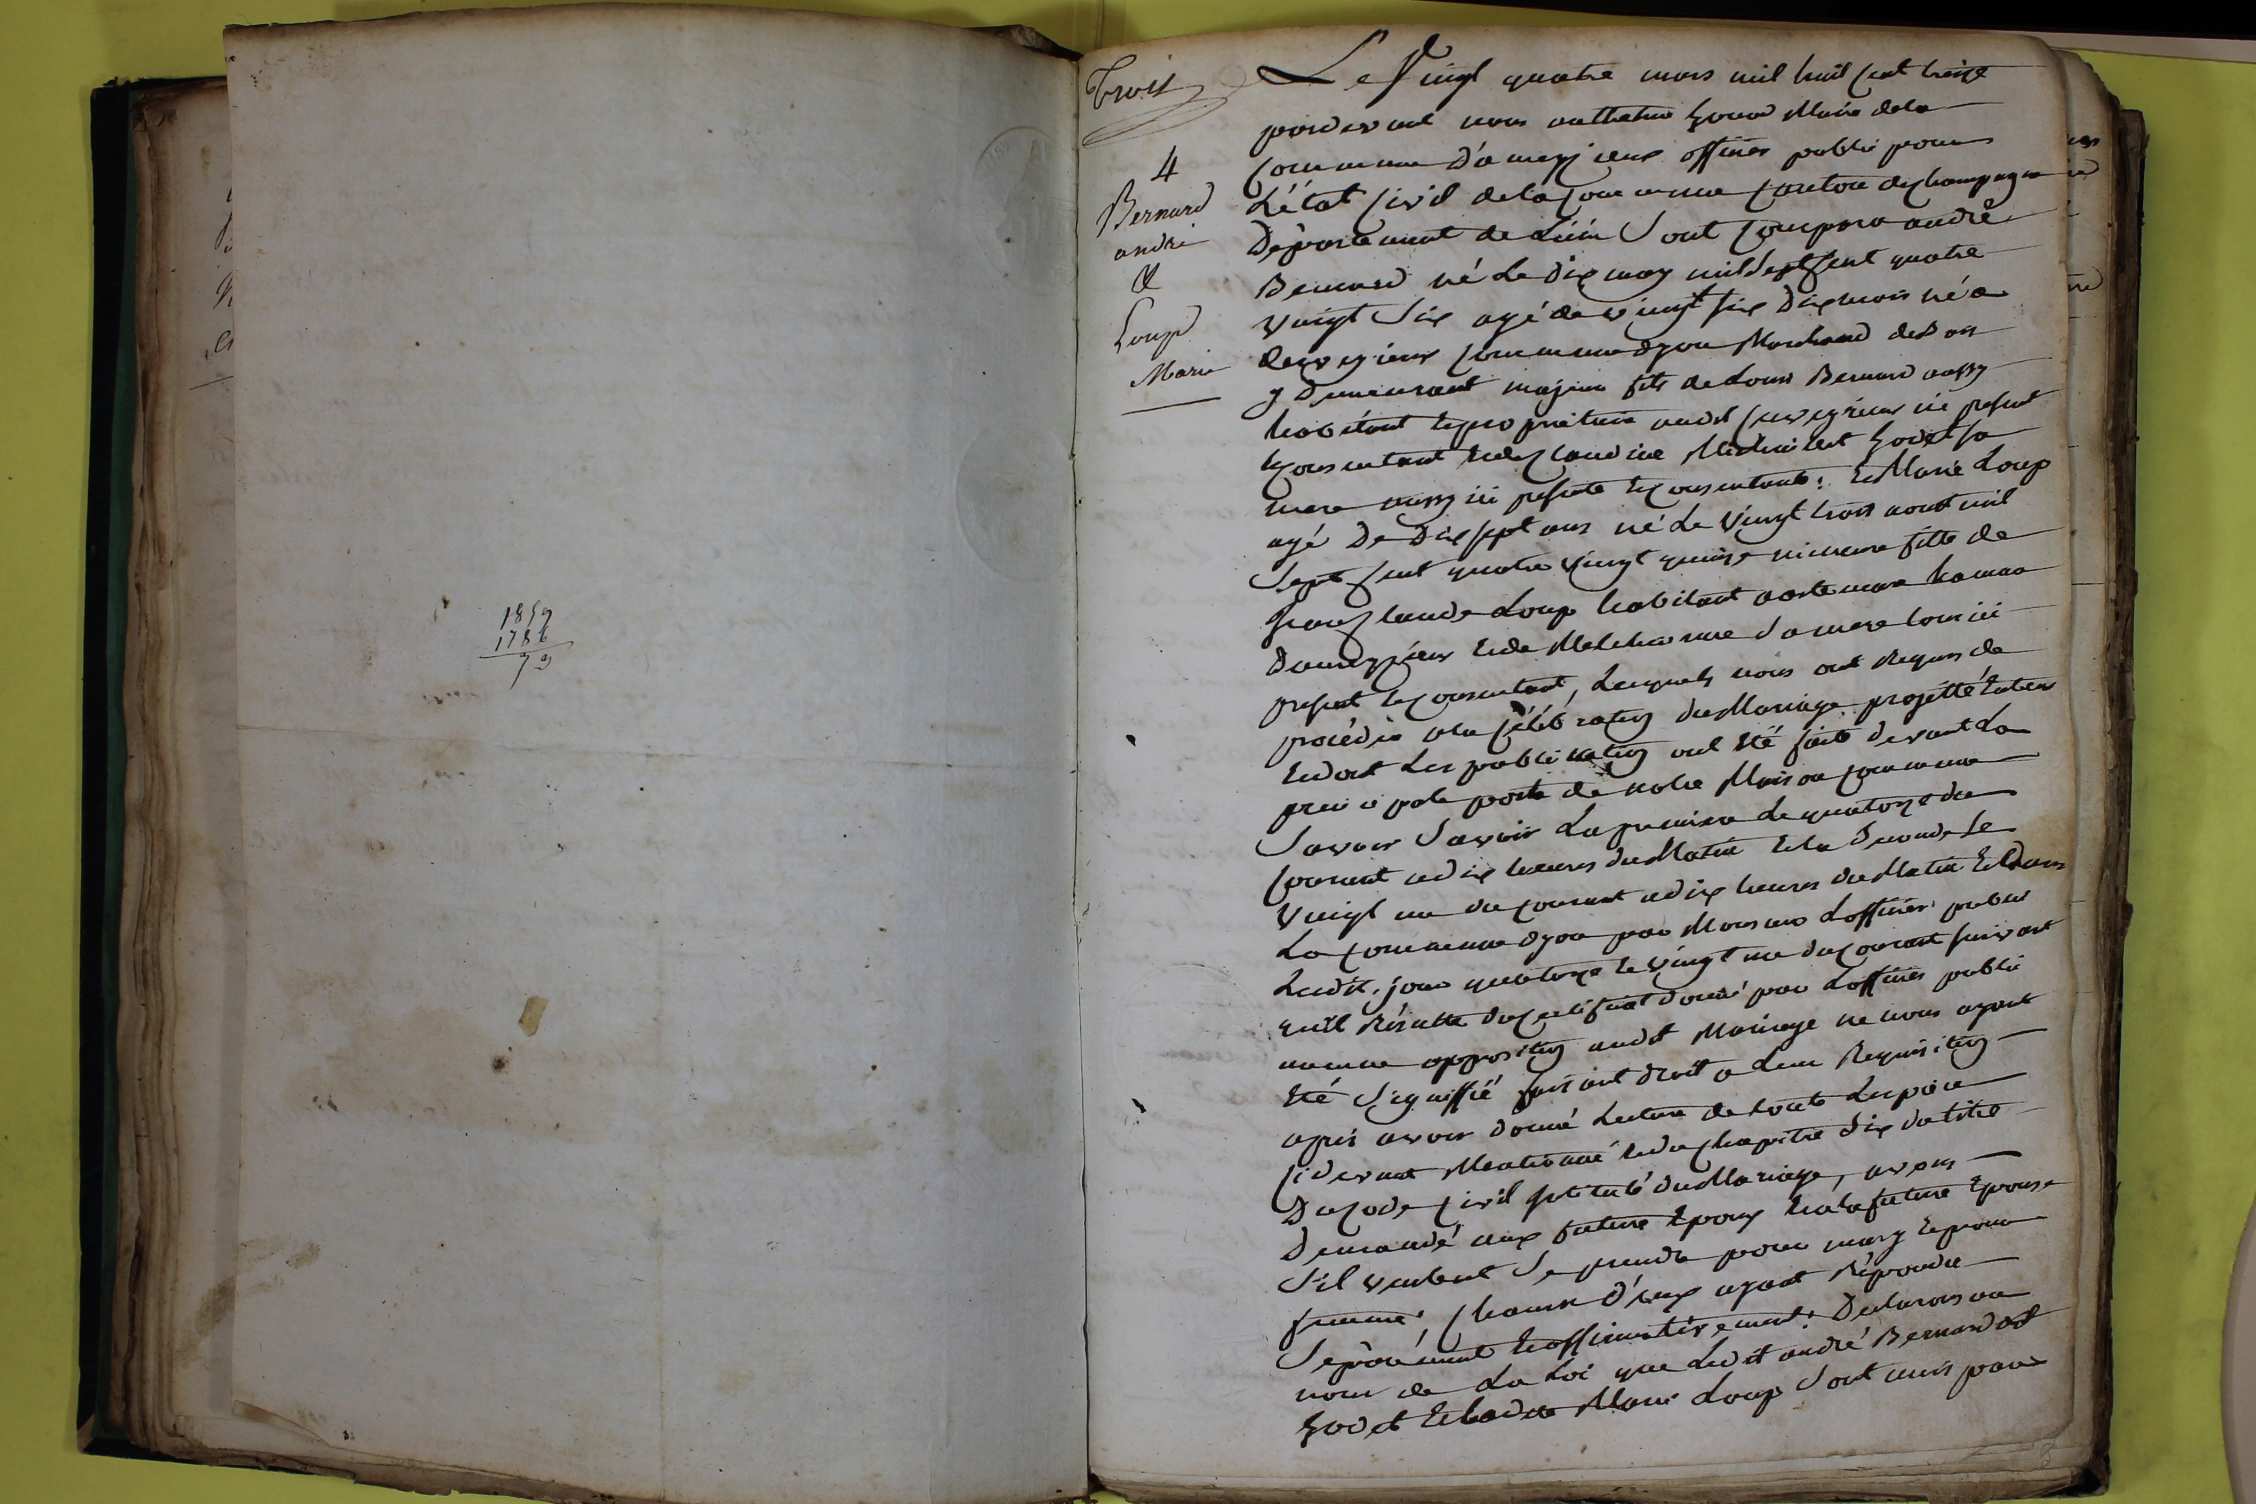 1859
1786
73
Trois
4
Bernard
andré
&
Loup
Marie
Le Vingt quatre mars mil huit cent treize
pardevant nous anthelme Maire dela
Commune D'ameyzieux officier public pour
L'état Civil dela Commune Canton de Champagne
Département de L'ain Sont Comparu andré
Bernard né Le Dix may mil Sept Cent quatre
vingt Six agé de vingt Six Dix mois né a
Commune dyon Marchand de
y Demeurant majeur fils de Louis Bernard aussy
habitant Propriétaire audit ici présent
Consentant Et de Claudine sa
mere aussy ici présente Et Consentante; Et Marie Loup
agé De Dix Sept ans né Le Vingt trois aout mil
Sept Cent quatre Vingt quinze mineure fille de
Claude Loup habitant
Dameyzieux Et de Sa mere tous ici
present Et Consentant, Lesquels nous ont Requis de
procéder a la Célébration du Mariage projetté Entreux
Et dont Les publication ont Eté faite devant La
principale porte de notre Maison Commune
Savoir Savoir La premiere Le quatorze du
Courant a dix heures du Matin Et la Seconde Le
Vingt un du courant a dix heures du Matin Et dans
La Commune dyon par Monsieur Lofficier public
Ledit jour quatorze Et vingt un du Courant suivant
quil Résulte du Certificat donné par Lofficier public
aucune opposition audit Mariage ne nous ayant
Eté Signiffié faisant droit a Leur Requisition
après avoir donné Lecture de toute Les piéce
Ci devant Mentionné Et du Chapitre Six du titre
Du Code Civil Intitulé du Mariage, avons
Demandé aux future Epoux Et a la future Epouse
S'il veulent Se prendre pour mary Et pour
femme, Chacun d'eux ayant Répondu
Séparément Et affirmativement: Déclarons au
nom de La Loi que Ledit andré Bernard dit
Et Ladite Marie Loup Sont unis par